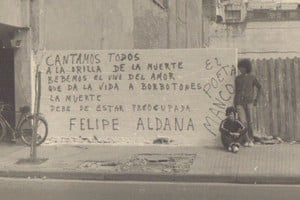 CANTAMOS TODOS
A LA ORILLA DE LA MUERTE
BEBEMOS EL VINO DEL AMOR
QUE DA LA VIDA A BORBOTONES
LA MUERTE
DEBE DE ESTAR PREOCUPADA
FELIPE ALDANA
EL
POETA
MANCO